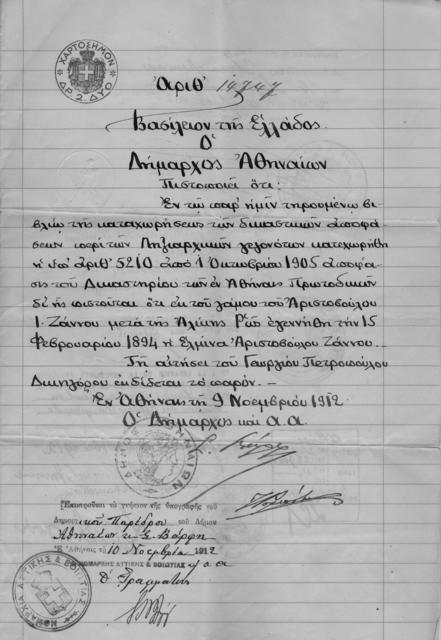 ΧΑΡΤΟΣΗΜΟΝ
ΔΡ. 2. ΔΥΟ
Ἀριθ 14747
Βασίλειον τῆς Ἑλλάδος.
Ὁ
Δήμαρχος Ἀθηναίων
Πιστοποιεῖ ὅτι:
Ἐν τῷ παρ' ἡμῖν τηρουμένῳ βι-
βλίῳ τῆς καταχωρήσεως τῶν δικαστικῶν ἀποφά-
σεων περὶ τῶν Ληξιαρχικῶν γεγονότων κατεχωρήθη
ἡ ὑπ' ἀριθ 5210 ἀπὸ 1 Ὀκτωβρίου 1905 ἀπόφα-
σις τοῦ Δικαστηρίου τῶν ἐν Ἀθήναις Πρωτοδικῶν
δι' ἧς πιστοῦται ὅτι ἐκ τοῦ γάμου τοῦ Ἀριστοβούλου
Ι. Ζάννου μετὰ τῆς Ἀλίκης ἐγεννήθη τὴν 15
Φεβρουαρίου 1894 ἡ Ἑλμίνα Ἀριστοβούλου Ζάννου.
Τῇ αἰτήσει τοῦ Γεωργίου Πετροπούλου
Δικηγόρου ἐκδίδεται τὸ παρόν. —
Ἐν Ἀθήναις τῇ 9 Νοεμβρίου 1912
Ὁ Δήμαρχος καὶ α.α.
Ἐπικυροῦται τὸ γνήσιον τῆς ὑπογραφῆς τοῦ
Δημοτικοῦ Παρέδρου τοῦ Δήμου
Ἀθηναίων κ. Σ. Βάρφη
Ἐν Ἀθήναις τῇ 10 Νοεμβρίου 1912
Ο ΝΟΜΑΡΧΗΣ ΑΤΤΙΚΗΣ & ΒΟΙΩΤΙΑΣ
Ὁ Γραμματεὺς
ΝΟΜΑΡΧΙΑ ΑΤΤΙΚΗΣ & ΒΟΙΩΤΙΑΣ